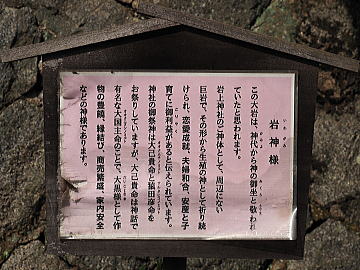 岩神様
いわがみ
この大岩は、神代から神の御坐と敬われ
ていたと思われます。
岩上神社のご神体として、周辺にない
巨岩で、その形から生殖の神として祈り続
けられ、恋愛成就、夫婦和合、安産と子
育てに御利益があると伝えられています。
神社の御祭神は大己貴命と猿田彦命を
お祭りしていますが、大己貴命は神話で
有名な大国主命のことで、大黒様として作
物の豊饒、縁結び、商売繁盛、家内安全
などの神様であります。